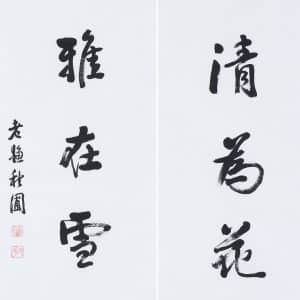 清為花
雅在雪
老秋圃